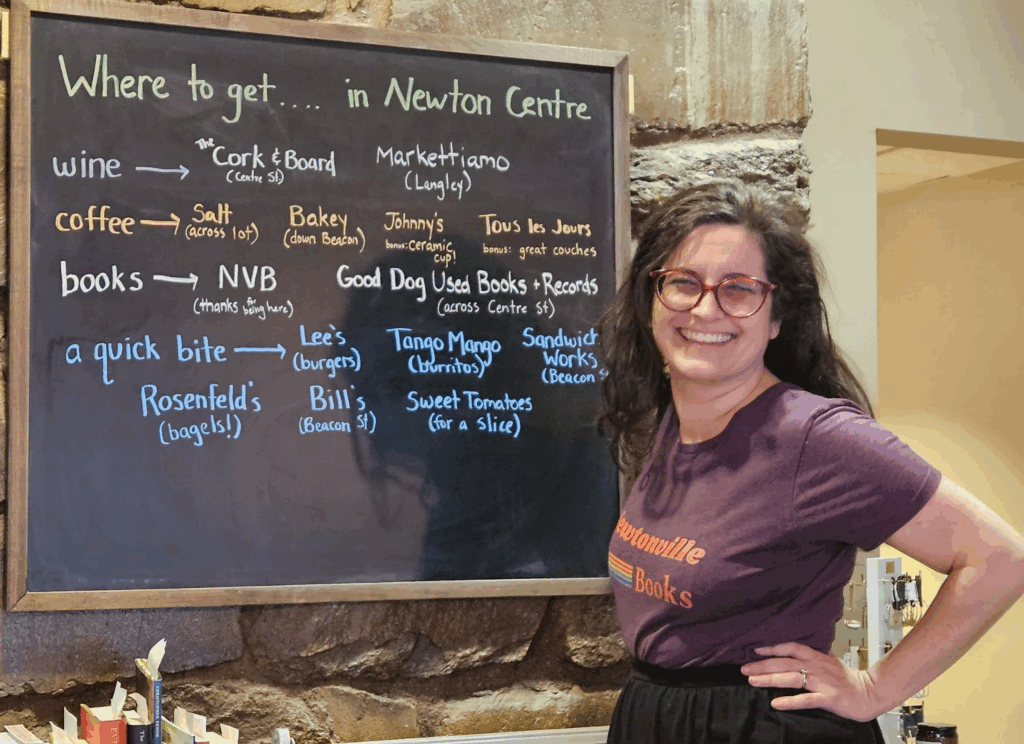 Where to get.... in Newton Centre
wine → The Cork & Board Markettiamo
(Centre St) (Langley)
coffee → Salt Bakey Johnny's Tous les Jours
(across lot) (down Beacon) bonus: ceramic cup! bonus: great couches
books → NVB Good Dog Used Books + Records
(thanks for being here) (across Centre St)
a quick bite → Lee's Tango Mango Sandwich Works
(burgers) (burritos) (Beacon
Rosenfeld's Bill's Sweet Tomatoes
(bagels!) (Beacon St) (for a slice)
ewtonville
Books